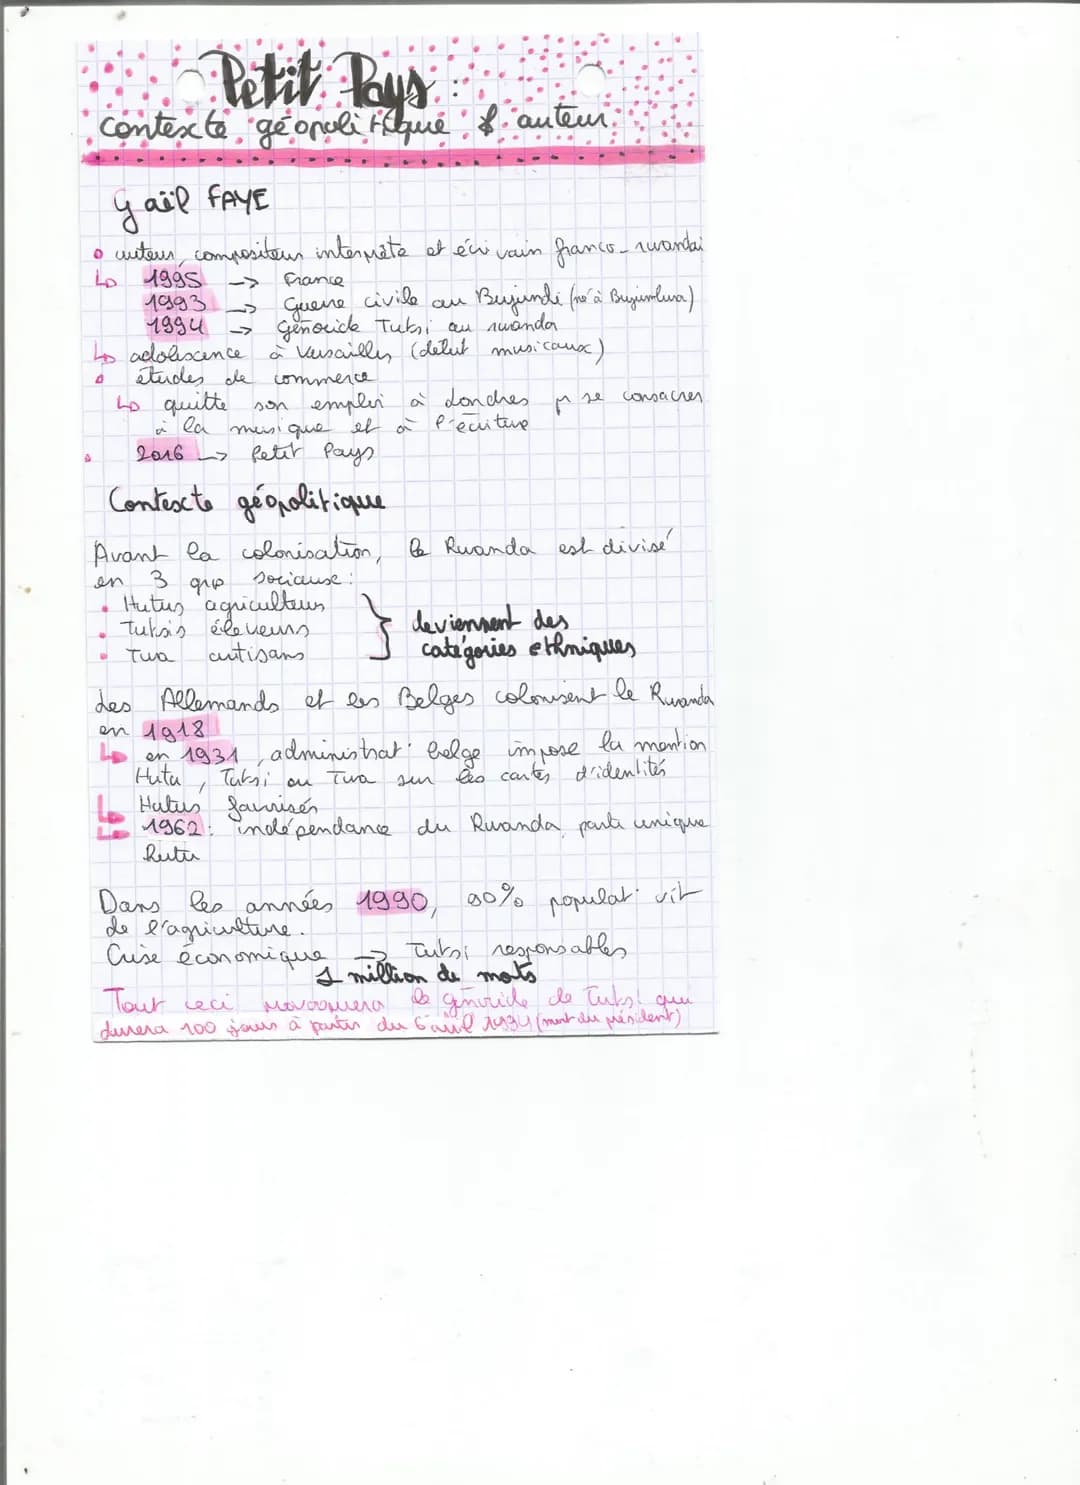 Petit Pays :
contexte géopolitique & auteur
Gaël FAYE
auteur, compositeur interprète et écrivain franco-rwandai
↳ 1995 -> France
1993 -> Guerre civile au Burundi (né à Bujumbura)
1994 -> Génocide Tutsi au rwanda
↳ adolescence à Versailles (début musicaux)
études de commerce
↳ quitte son emploi à Londres pr se consacrer
à la musique et à l'écriture
2016 -> Petit Pays
Contexte géopolitique
Avant la colonisation, le Rwanda est divisé
en 3 grp sociaux :
• Hutus agriculteurs
• Tutsis éleveurs
• Twa artisans
} deviennent des
catégories ethniques
Les Allemands et les Belges colonisent le Rwanda
en 1918
↳ en 1931, administrat° belge impose la mention
Hutu, Tutsi ou Twa sur les cartes d'identités
↳ Hutus favorisés
↳ 1962 : indépendance du Rwanda parti unique
Hutu
Dans les années 1990, 90% populat° vit
de l'agriculture.
Crise économique -> Tutsi responsables
1 million de morts
Tout ceci le génocide de Tutsi qui
durera 100 jours à partir du 6 avril 1994 (mort du président)